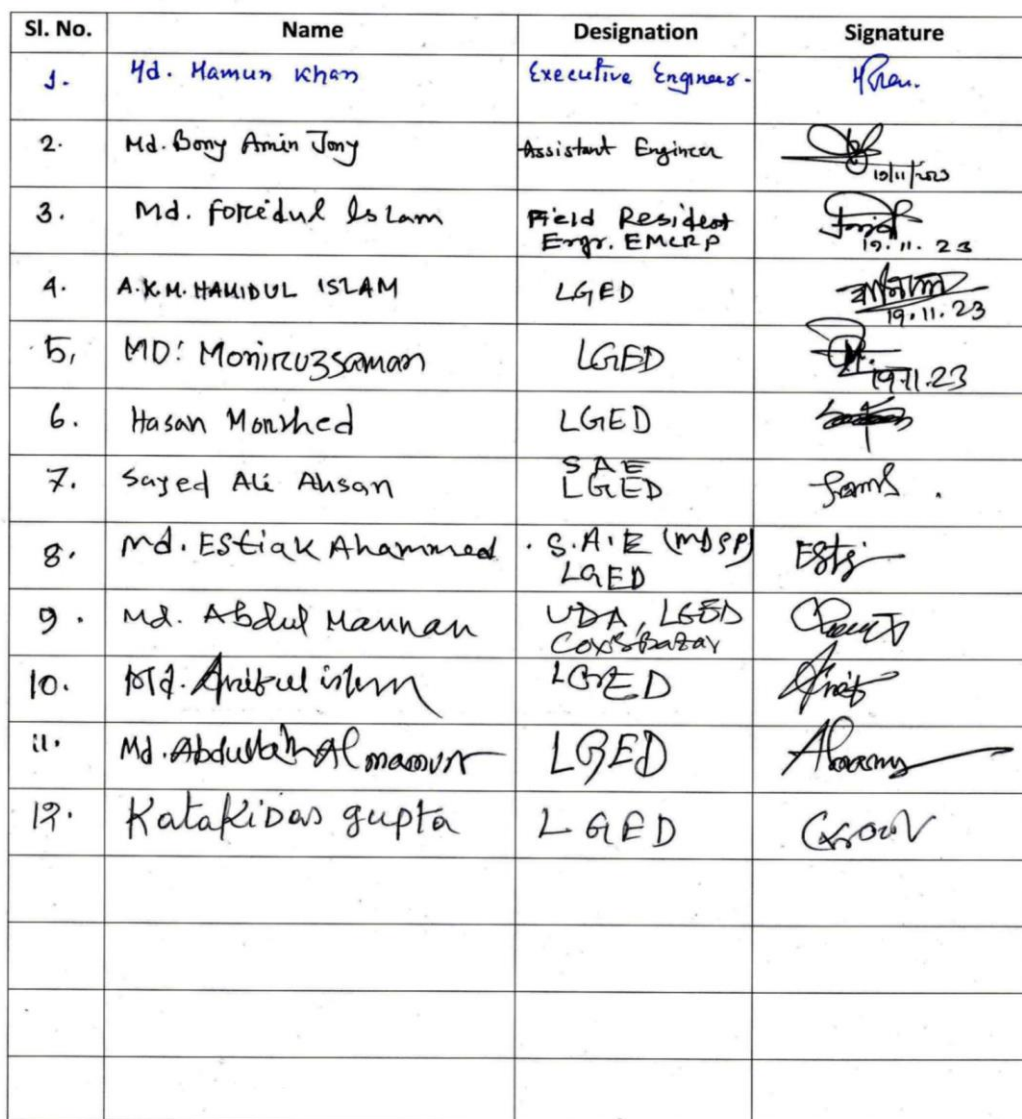 Sl. No. Name Designation Signature
1. Md. Mamun Khan Executive Engineer. Khan.
2. Md. Bony Amin Jony Assistant Engineer
19/11/2023
3. Md. Foridul Islam Field Resident
Engr. EMCRP
19.11.23
4. A.K.M. HAMIDUL ISLAM LGED
19.11.23
5. MD: Moniruzzaman LGED
19.11.23
6. Hasan Morshed LGED
7. Sayed Ali Ahsan SAE
LGED
8. Md. Estiak Ahammed S.A.E (MDSP)
LGED
9. Md. Abdul Mannan UDA, LGED
Cox's bazar
10. Md. islam LGED
11. Md. Abdullah Al mamun LGED
12. Kataki Das gupta LGED